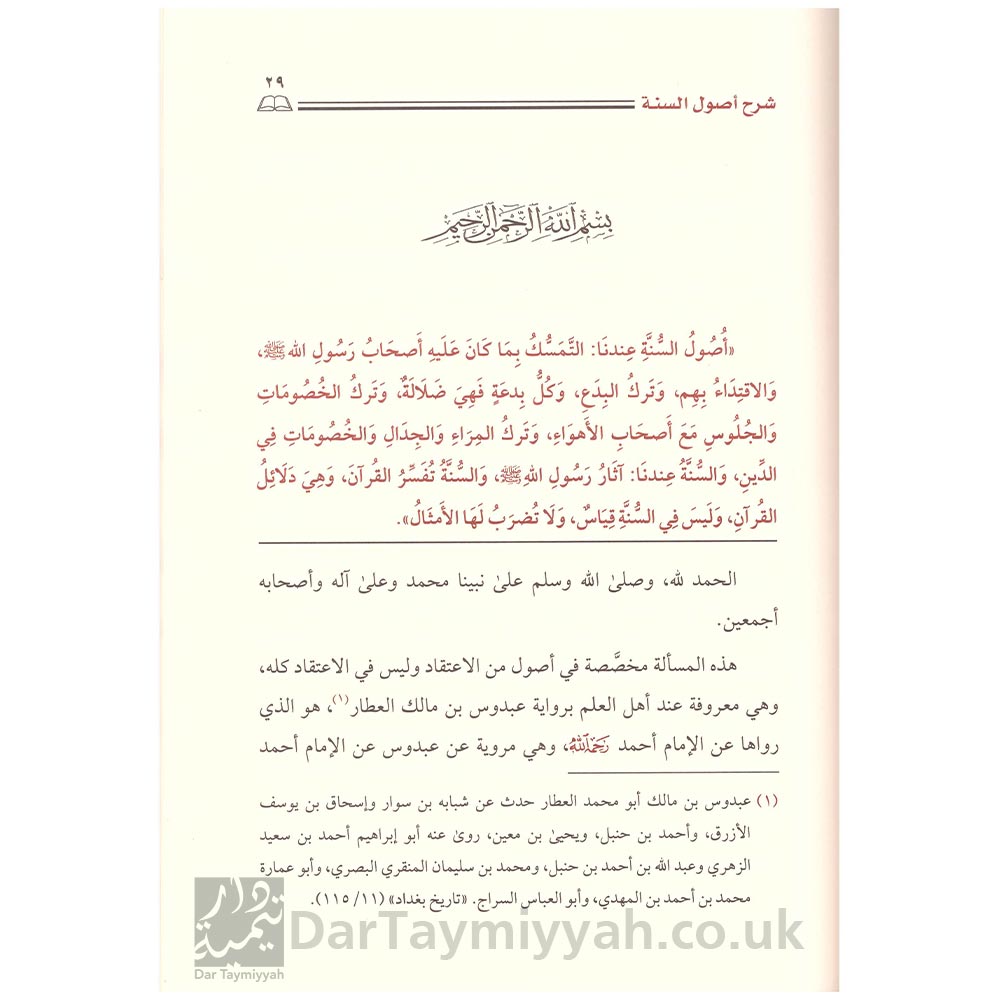 ٢٩
شرح أصول السنة
بِسْمِ اللَّهِ الرَّحْمَٰنِ الرَّحِيمِ
«أُصُولُ السُّنَّةِ عِندنَا: التَّمَسُّكُ بِمَا كَانَ عَلَيهِ أَصحَابُ رَسُولِ الله ﷺ،
وَالاقتِدَاءُ بِهِم، وَتَركُ البِدَعِ، وَكُلُّ بِدعَةٍ فَهِيَ ضَلَالَةٌ، وَتَركُ الخُصُومَاتِ
وَالجُلُوسِ مَعَ أَصحَابِ الأَهوَاءِ، وَتَركُ المِرَاءِ وَالجِدَالِ وَالخُصُومَاتِ فِي
الدِّينِ، وَالسُّنَّةُ عِندنَا: آثَارُ رَسُولِ اللهِ ﷺ، وَالسُّنَّةُ تُفَسِّرُ القُرآنَ، وَهِيَ دَلَائِلُ
القُرآنِ، وَلَيسَ فِي السُّنَّةِ قِيَاسٌ، وَلَا تُضرَبُ لَهَا الأَمثَالُ».
الحمد لله، وصلىٰ الله وسلم علىٰ نبينا محمد وعلىٰ آله وأصحابه
أجمعين.
هذه المسألة مخصَّصة في أصول من الاعتقاد وليس في الاعتقاد كله،
وهي معروفة عند أهل العلم برواية عبدوس بن مالك العطار(١)، هو الذي
رواها عن الإمام أحمد رَحِمَهُ ٱللَّهُ، وهي مروية عن عبدوس عن الإمام أحمد
(١) عبدوس بن مالك أبو محمد العطار حدث عن شبابه بن سوار وإسحاق بن يوسف
الأزرق، وأحمد بن حنبل، ويحيىٰ بن معين، روىٰ عنه أبو إبراهيم أحمد بن سعيد
الزهري وعبد الله بن أحمد بن حنبل، ومحمد بن سليمان المنقري البصري، وأبو عمارة
محمد بن أحمد بن المهدي، وأبو العباس السراج. «تاريخ بغداد» (١١/ ١١٥).
دار تيمية
Dar Taymiyyah
DarTaymiyyah.co.uk